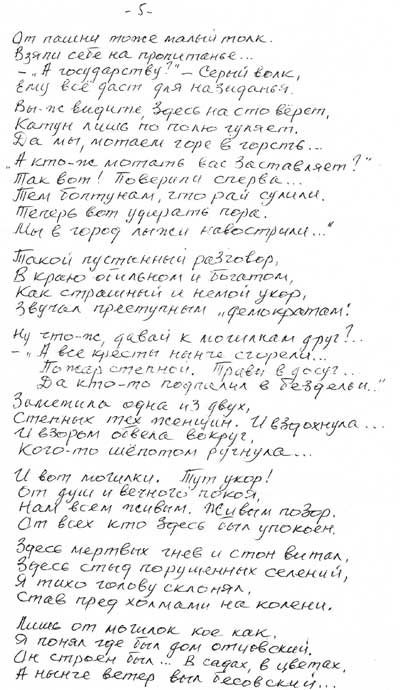 -5-
От пашни тоже малый толк.
Взяли себе на пропитанье...
– „А государству?" – Серый волк,
Ему всё даст для назиданья.
Вы-ж видите, здесь на сто вёрст,
Катун лишь по полю гуляет.
Да мы, мотаем горе в горсть...
„А кто-ж мотать вас заставляет?"
Так вот! Поверили сперва...
Тем болтунам, что рай сулили.
Теперь вот удирать пора.
Мы в город лыжи навострили..."
Такой пустынный разговор,
В краю обильном и богатом,
Как страшный и немой укор,
Звучал преступным „демократам".
Ну что-ж, давай к могилкам друг?..
– „А все кресты нынче сгорели...
Пожар степной. Травы в досуг..
Да кто-то подпалил в бездельи.."
Заметила одна из двух,
Степных тех женщин. И вздохнула...
И взором обвела вокруг,
Кого-то шёпотом ругнула...
И вот могилки. Тут укор!
От душ и вечного покоя,
Нам всем живым. Живым позор.
От всех кто здесь был упокоен.
Здесь мертвых гнев и стон витал,
Здесь стыд порушенных селений,
Я тихо голову склонял,
Став пред холмами на колени.
Лишь от могилок кое как,
Я понял где был дом отцовский.
Он строен был... В садах, в цветах,
А нынче ветер выл бесовский...